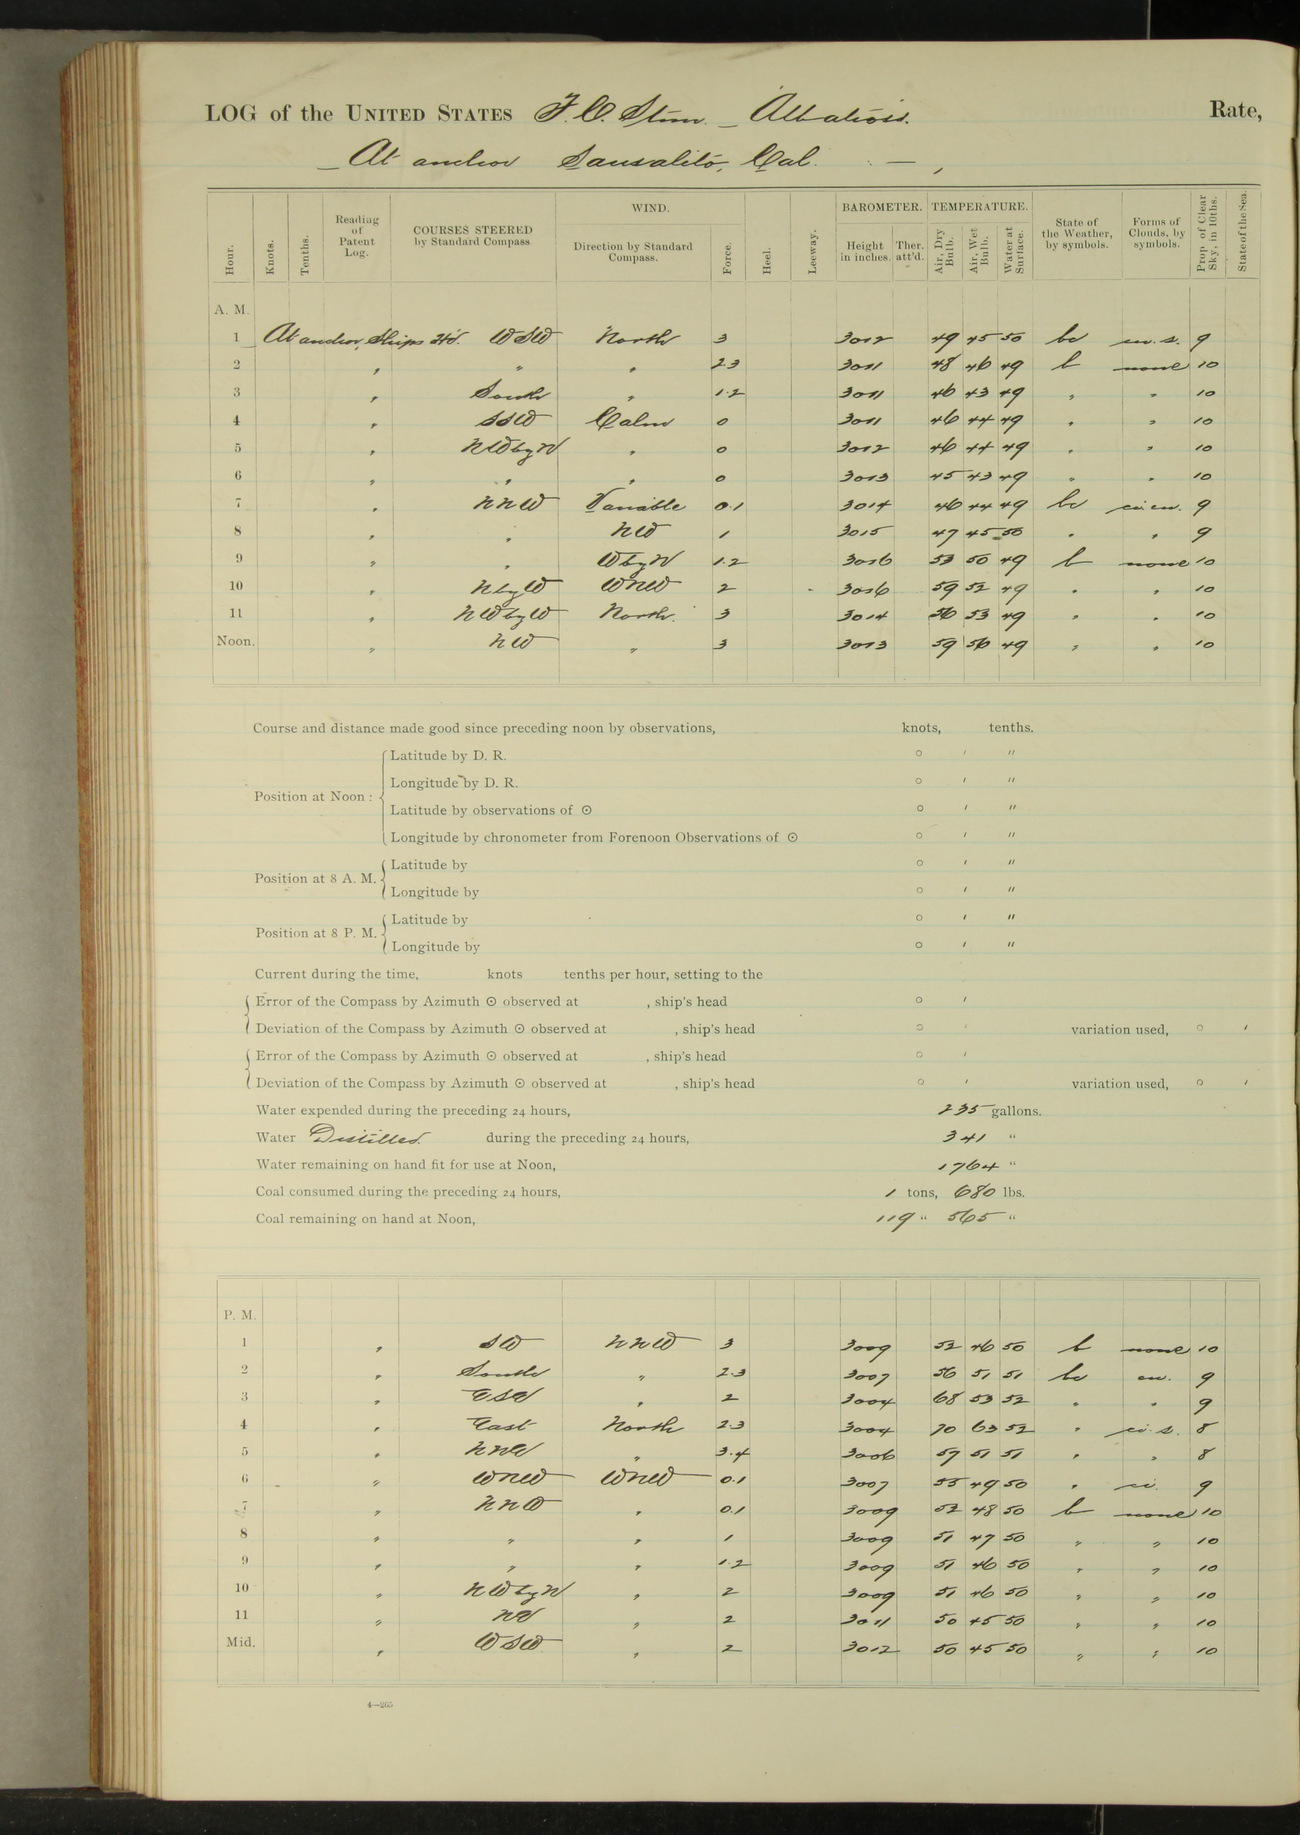 LOG of the UNITED STATES F. C. Stmr. Albatross. Rate,
At anchor Sausalito, Cal.
Hour. Knots. Tenths. Reading of Patent Log. COURSES STEERED by Standard Compass. WIND. Direction by Standard Compass. Force. Heel. Leeway. BAROMETER. Height in inches. Ther. att'd. TEMPERATURE. Air, Dry Bulb. Air, Wet Bulb. Water at Surface. State of the Weather, by symbols. Forms of Clouds, by symbols. Prop. of Clear Sky, in 10ths. State of the Sea.
A. M.
1 At anchor, Ships H'd. WSW North 3 3012 49 45 50 bc cu. s. 9
2 " " " 2.3 3011 48 46 49 b none 10
3 " South " 1.2 3011 46 43 49 " " 10
4 " SSW Calm 0 3011 46 44 49 " " 10
5 " NWbyN " 0 3012 46 44 49 " " 10
6 " " " 0 3013 45 43 49 " " 10
7 " NNW Variable 0.1 3014 46 44 49 bc ci. cu. 9
8 " " NW 1 3015 47 45 50 " " 9
9 " " WbyN 1.2 3016 53 50 49 b none 10
10 " NbyW WNW 2 3016 59 52 49 " " 10
11 " NWbyW North. 3 3014 56 53 49 " " 10
Noon. " NW " 3 3013 59 56 49 " " 10
Course and distance made good since preceding noon by observations, knots, tenths.
Position at Noon:
Latitude by D. R. ° ′ ″
Longitude by D. R. ° ′ ″
Latitude by observations of ⊙ ° ′ ″
Longitude by chronometer from Forenoon Observations of ⊙ ° ′ ″
Position at 8 A. M.
Latitude by ° ′ ″
Longitude by ° ′ ″
Position at 8 P. M.
Latitude by ° ′ ″
Longitude by ° ′ ″
Current during the time, knots tenths per hour, setting to the
Error of the Compass by Azimuth ⊙ observed at , ship's head ° ′
Deviation of the Compass by Azimuth ⊙ observed at , ship's head ° ′ variation used, ° ′
Error of the Compass by Azimuth ⊙ observed at , ship's head ° ′
Deviation of the Compass by Azimuth ⊙ observed at , ship's head ° ′ variation used, ° ′
Water expended during the preceding 24 hours, 235 gallons.
Water Distilled during the preceding 24 hours, 341 "
Water remaining on hand fit for use at Noon, 1764 "
Coal consumed during the preceding 24 hours, 1 tons, 680 lbs.
Coal remaining on hand at Noon, 119 " 565 "
P. M.
1 " SW NNW 3 3009 52 46 50 b none 10
2 " South " 2.3 3007 56 51 51 bc cu. 9
3 " ESE " 2 3004 68 53 52 " " 9
4 " East North 2.3 3004 70 63 52 " ci. s. 8
5 " NNE " 3.4 3006 57 51 51 " " 8
6 " WNW WNW 0.1 3007 55 49 50 " ci. 9
7 " NNW " 0.1 3009 52 48 50 b none 10
8 " " " 1 3009 51 47 50 " " 10
9 " " " 1.2 3009 51 46 50 " " 10
10 " NWbyN " 2 3009 51 46 50 " " 10
11 " " 2 3011 50 45 50 " " 10
Mid. " WSW " 2 3012 50 45 50 " " 10
4—265